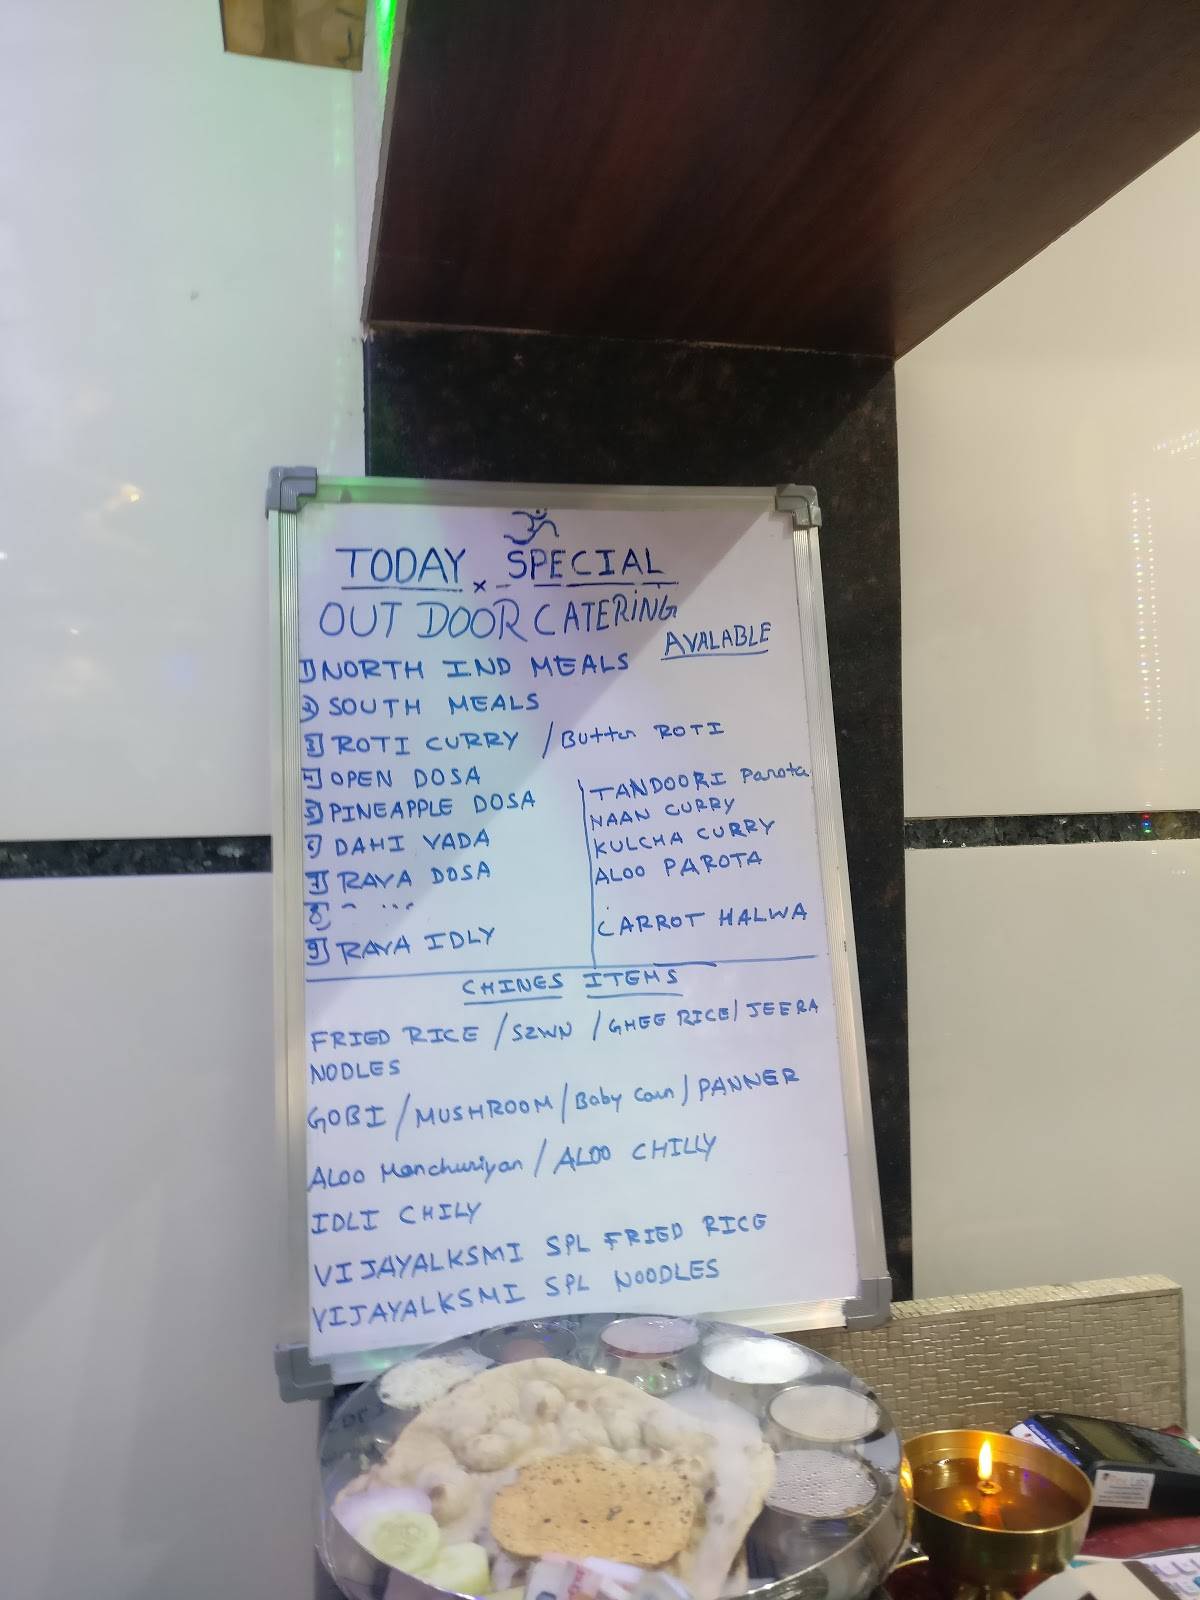 ॐ
TODAY SPECIAL
OUT DOOR CATERING
AVALABLE
1) NORTH IND MEALS
2) SOUTH MEALS
3) ROTI CURRY / Butter ROTI
4) OPEN DOSA
5) PINEAPPLE DOSA
6) DAHI VADA
7) RAVA DOSA
8)
9) RAVA IDLY
TANDOORI Parota
NAAN CURRY
KULCHA CURRY
ALOO PAROTA
CARROT HALWA
CHINES ITEMS
FRIED RICE / SZWN / GHEE RICE / JEERA
NODLES
GOBI / MUSHROOM / Baby Corn / PANNER
ALOO Manchuriyan / ALOO CHILLY
IDLI CHILY
VIJAYALKSMI SPL FRIED RICE
VIJAYALKSMI SPL NOODLES